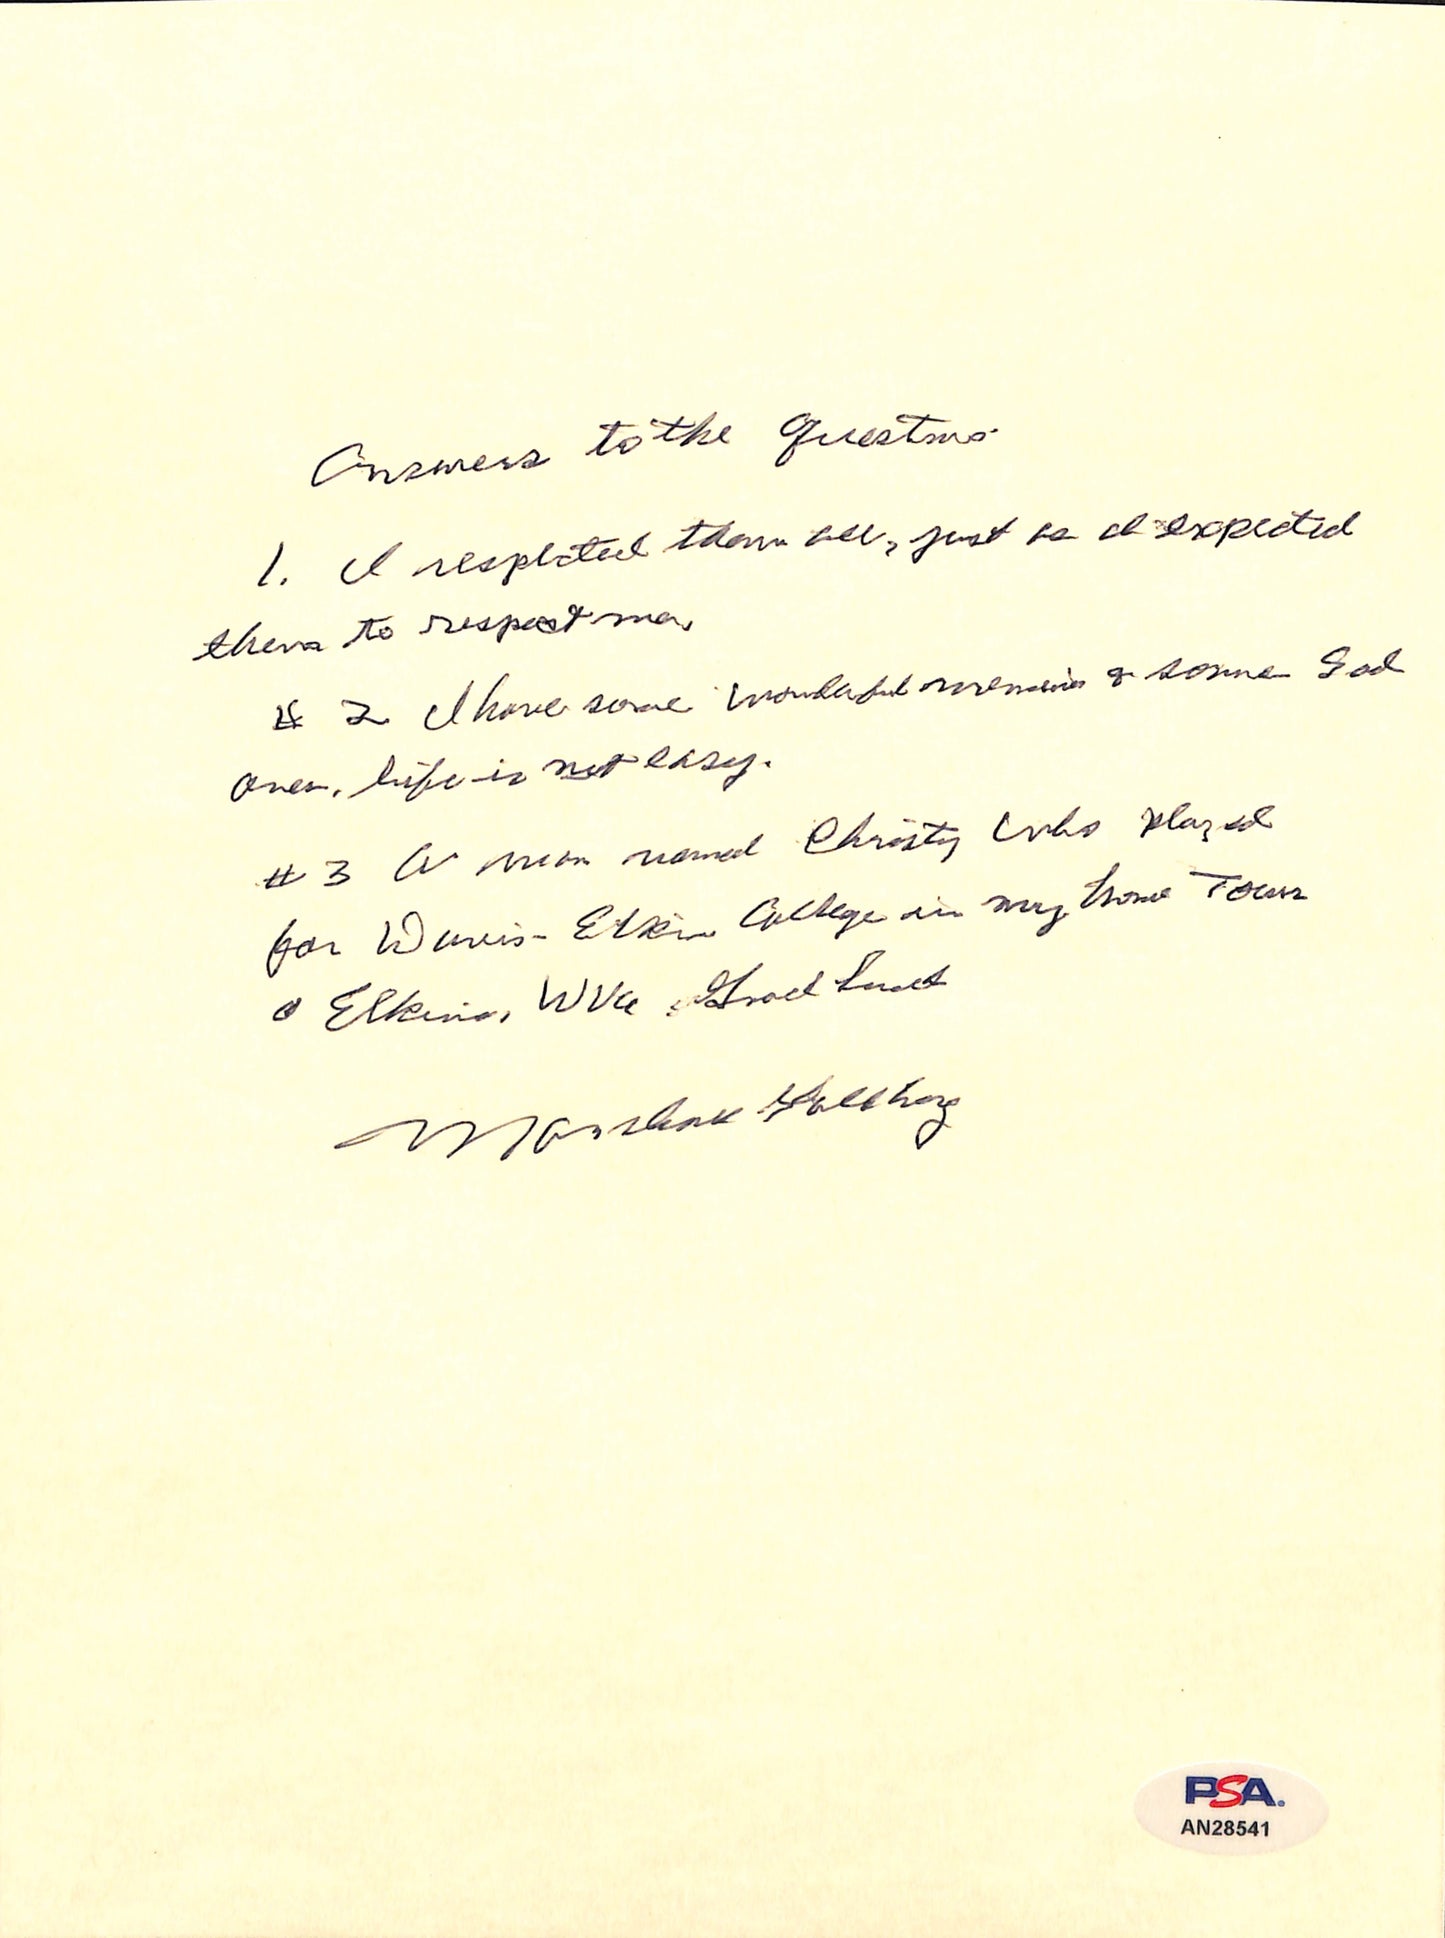 Answers to the Questions
1. I respected them all, just as I expected
them to respect me.
# 2 I have some wonderful memories & some Sad
ones, life is not easy.
# 3 A man named Christy who played
for Davis-Elkins College in my home Town
o Elkins, WVa. Good Luck
Marshall Goldberg
PSA
AN28541